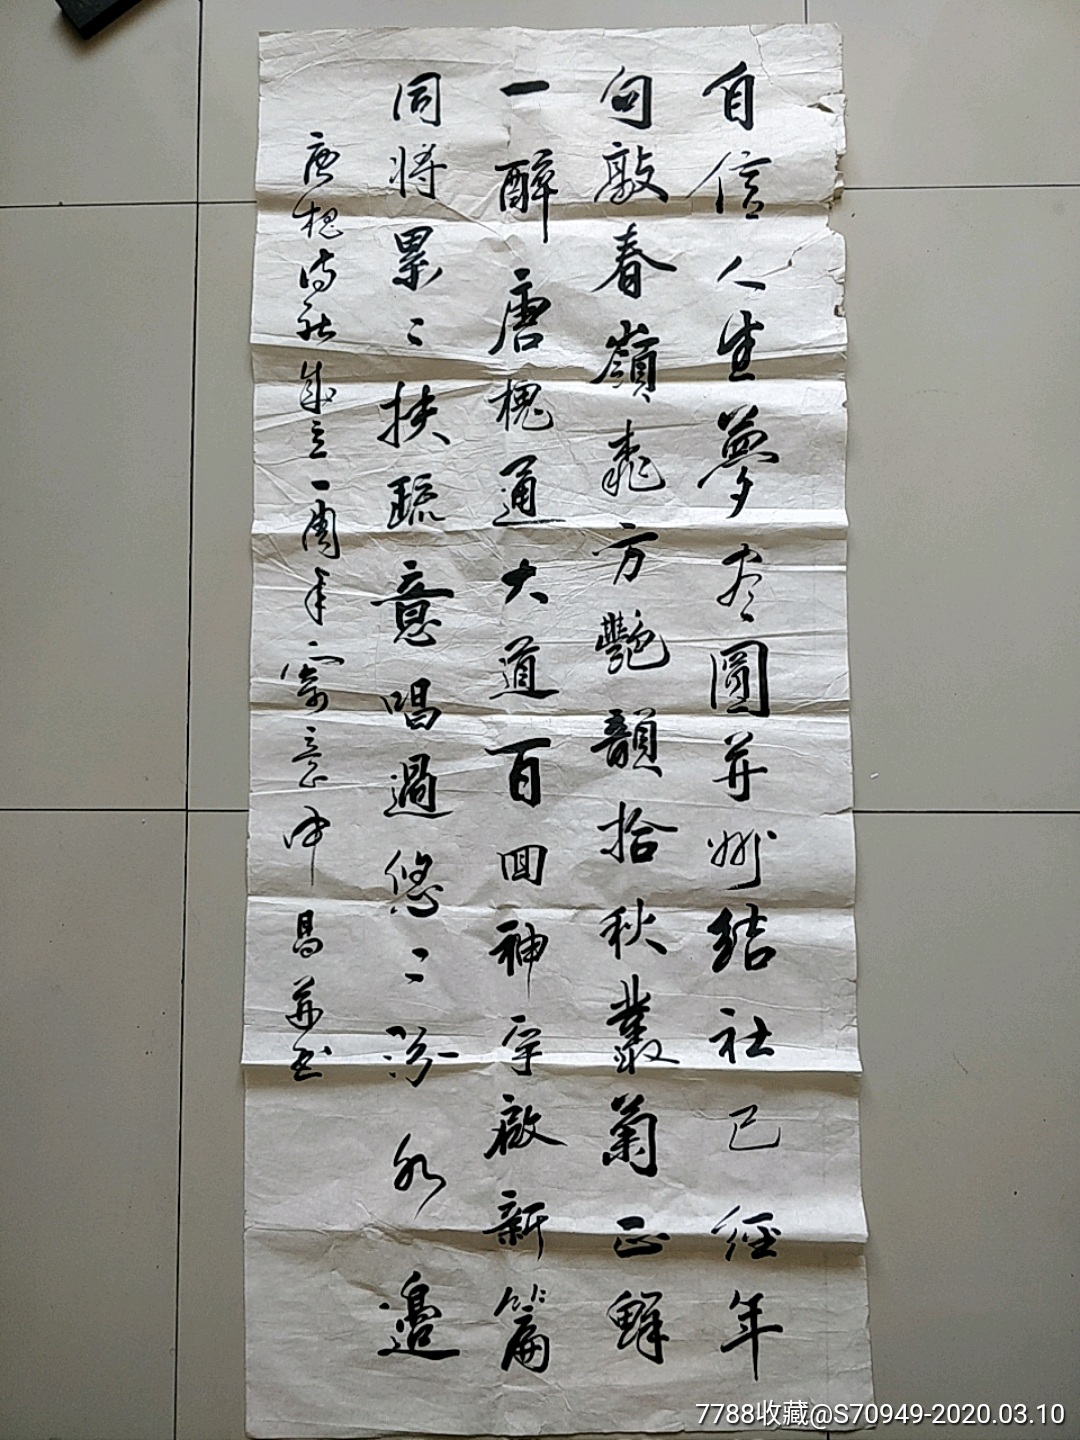 自信人生夢應圓并州結社已經年
句敲春嶺桃方艷韻拾秋叢菊正鮮
一醉唐槐通大道百回神宇啟新篇
同將累〻扶疏意唱過悠〻汾水邊
唐槐诗社成立一周年寄意申昌并书
7788收藏@S70949-2020.03.10